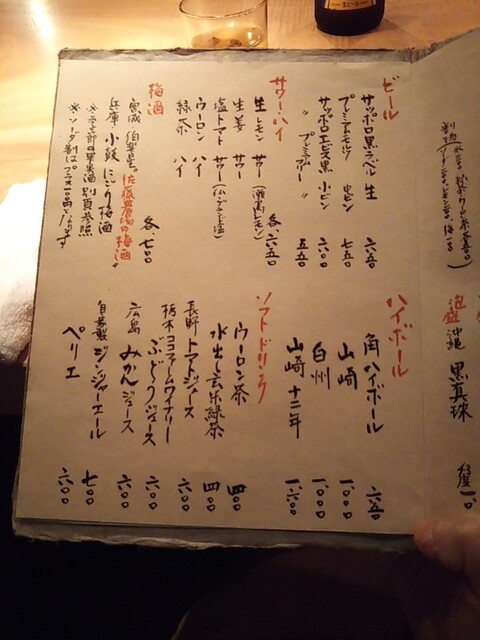 ビール
サッポロ黒ラベル 生 六五〇
プレミアムモルツ 中ビン 七五〇
サッポロエビス黒 小ビン 六〇〇
〃 プレミアム 〃 五五〇
サワー・ハイ
生レモン サワー (瀬戸レモン) 各、六五〇
生姜 サワー
塩トマト サワー
ウーロン ハイ
緑茶 ハイ
梅酒
宮城 伯楽星 佐藤農場の梅酒 各、七〇〇
兵庫 小鼓 にごり梅酒
別頁参照
ハイボール
角ハイボール 六五〇
山崎 一、〇〇〇
白州 一、〇〇〇
山崎 十二年 一、六〇〇
ソフトドリンク
ウーロン茶 四〇〇
水出し玄米緑茶 四〇〇
長野 トマトジュース 六〇〇
栃木ココファームワイナリー ぶどうジュース 六〇〇
広島 みかんジュース 六〇〇
自家製 ジンジャーエール 七〇〇
ペリエ 六〇〇
泡盛
沖縄 黒真珠